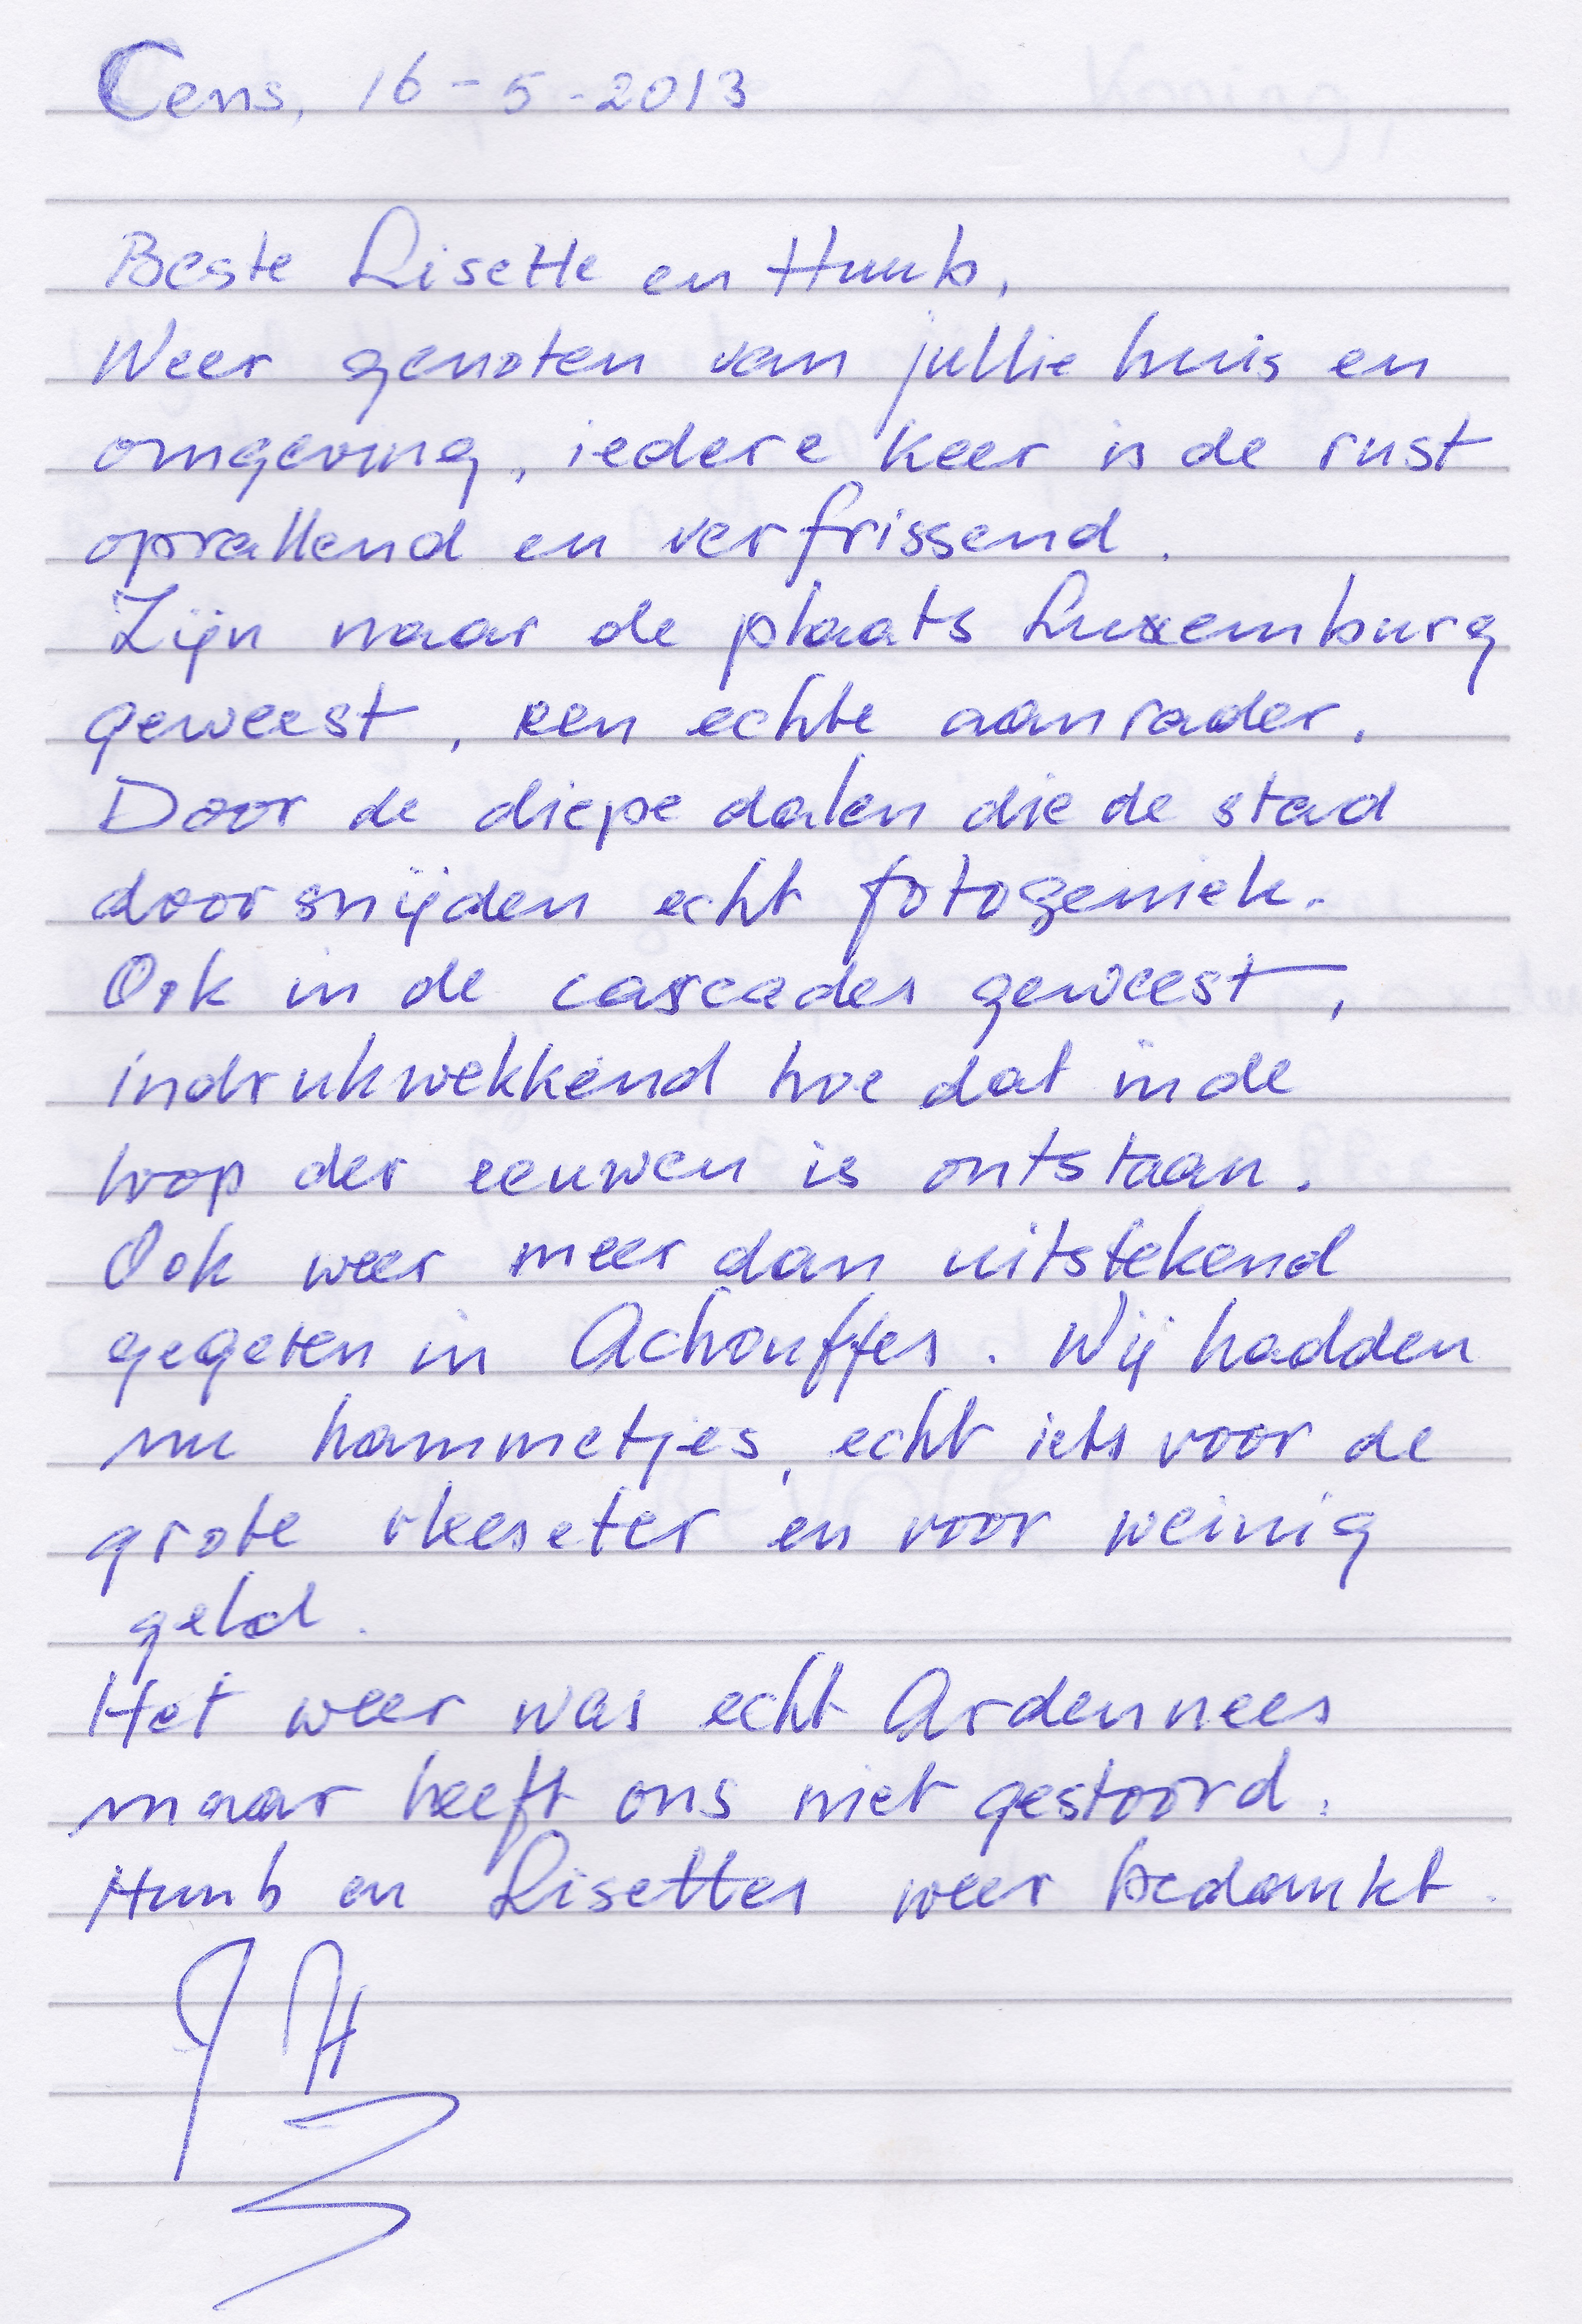 Cens, 16-5-2013
Beste Lisette en Huub,
Weer genoten van jullie huis en
omgeving, iedere keer is de rust
opvallend en verfrissend.
Zijn naar de plaats Luxemburg
geweest, een echte aanrader.
Door de diepe dalen die de stad
doorsnijden echt fotogeniek.
Ook in de cascades geweest,
indrukwekkend hoe dat in de
loop der eeuwen is ontstaan.
Ook weer meer dan uitstekend
gegeten in Achouffes. Wij hadden
nu hammetjes, echt iets voor de
grote vleeseter en voor weinig
geld.
Het weer was echt Ardennees
maar heeft ons niet gestoord.
Huub en Lisettes weer bedankt.